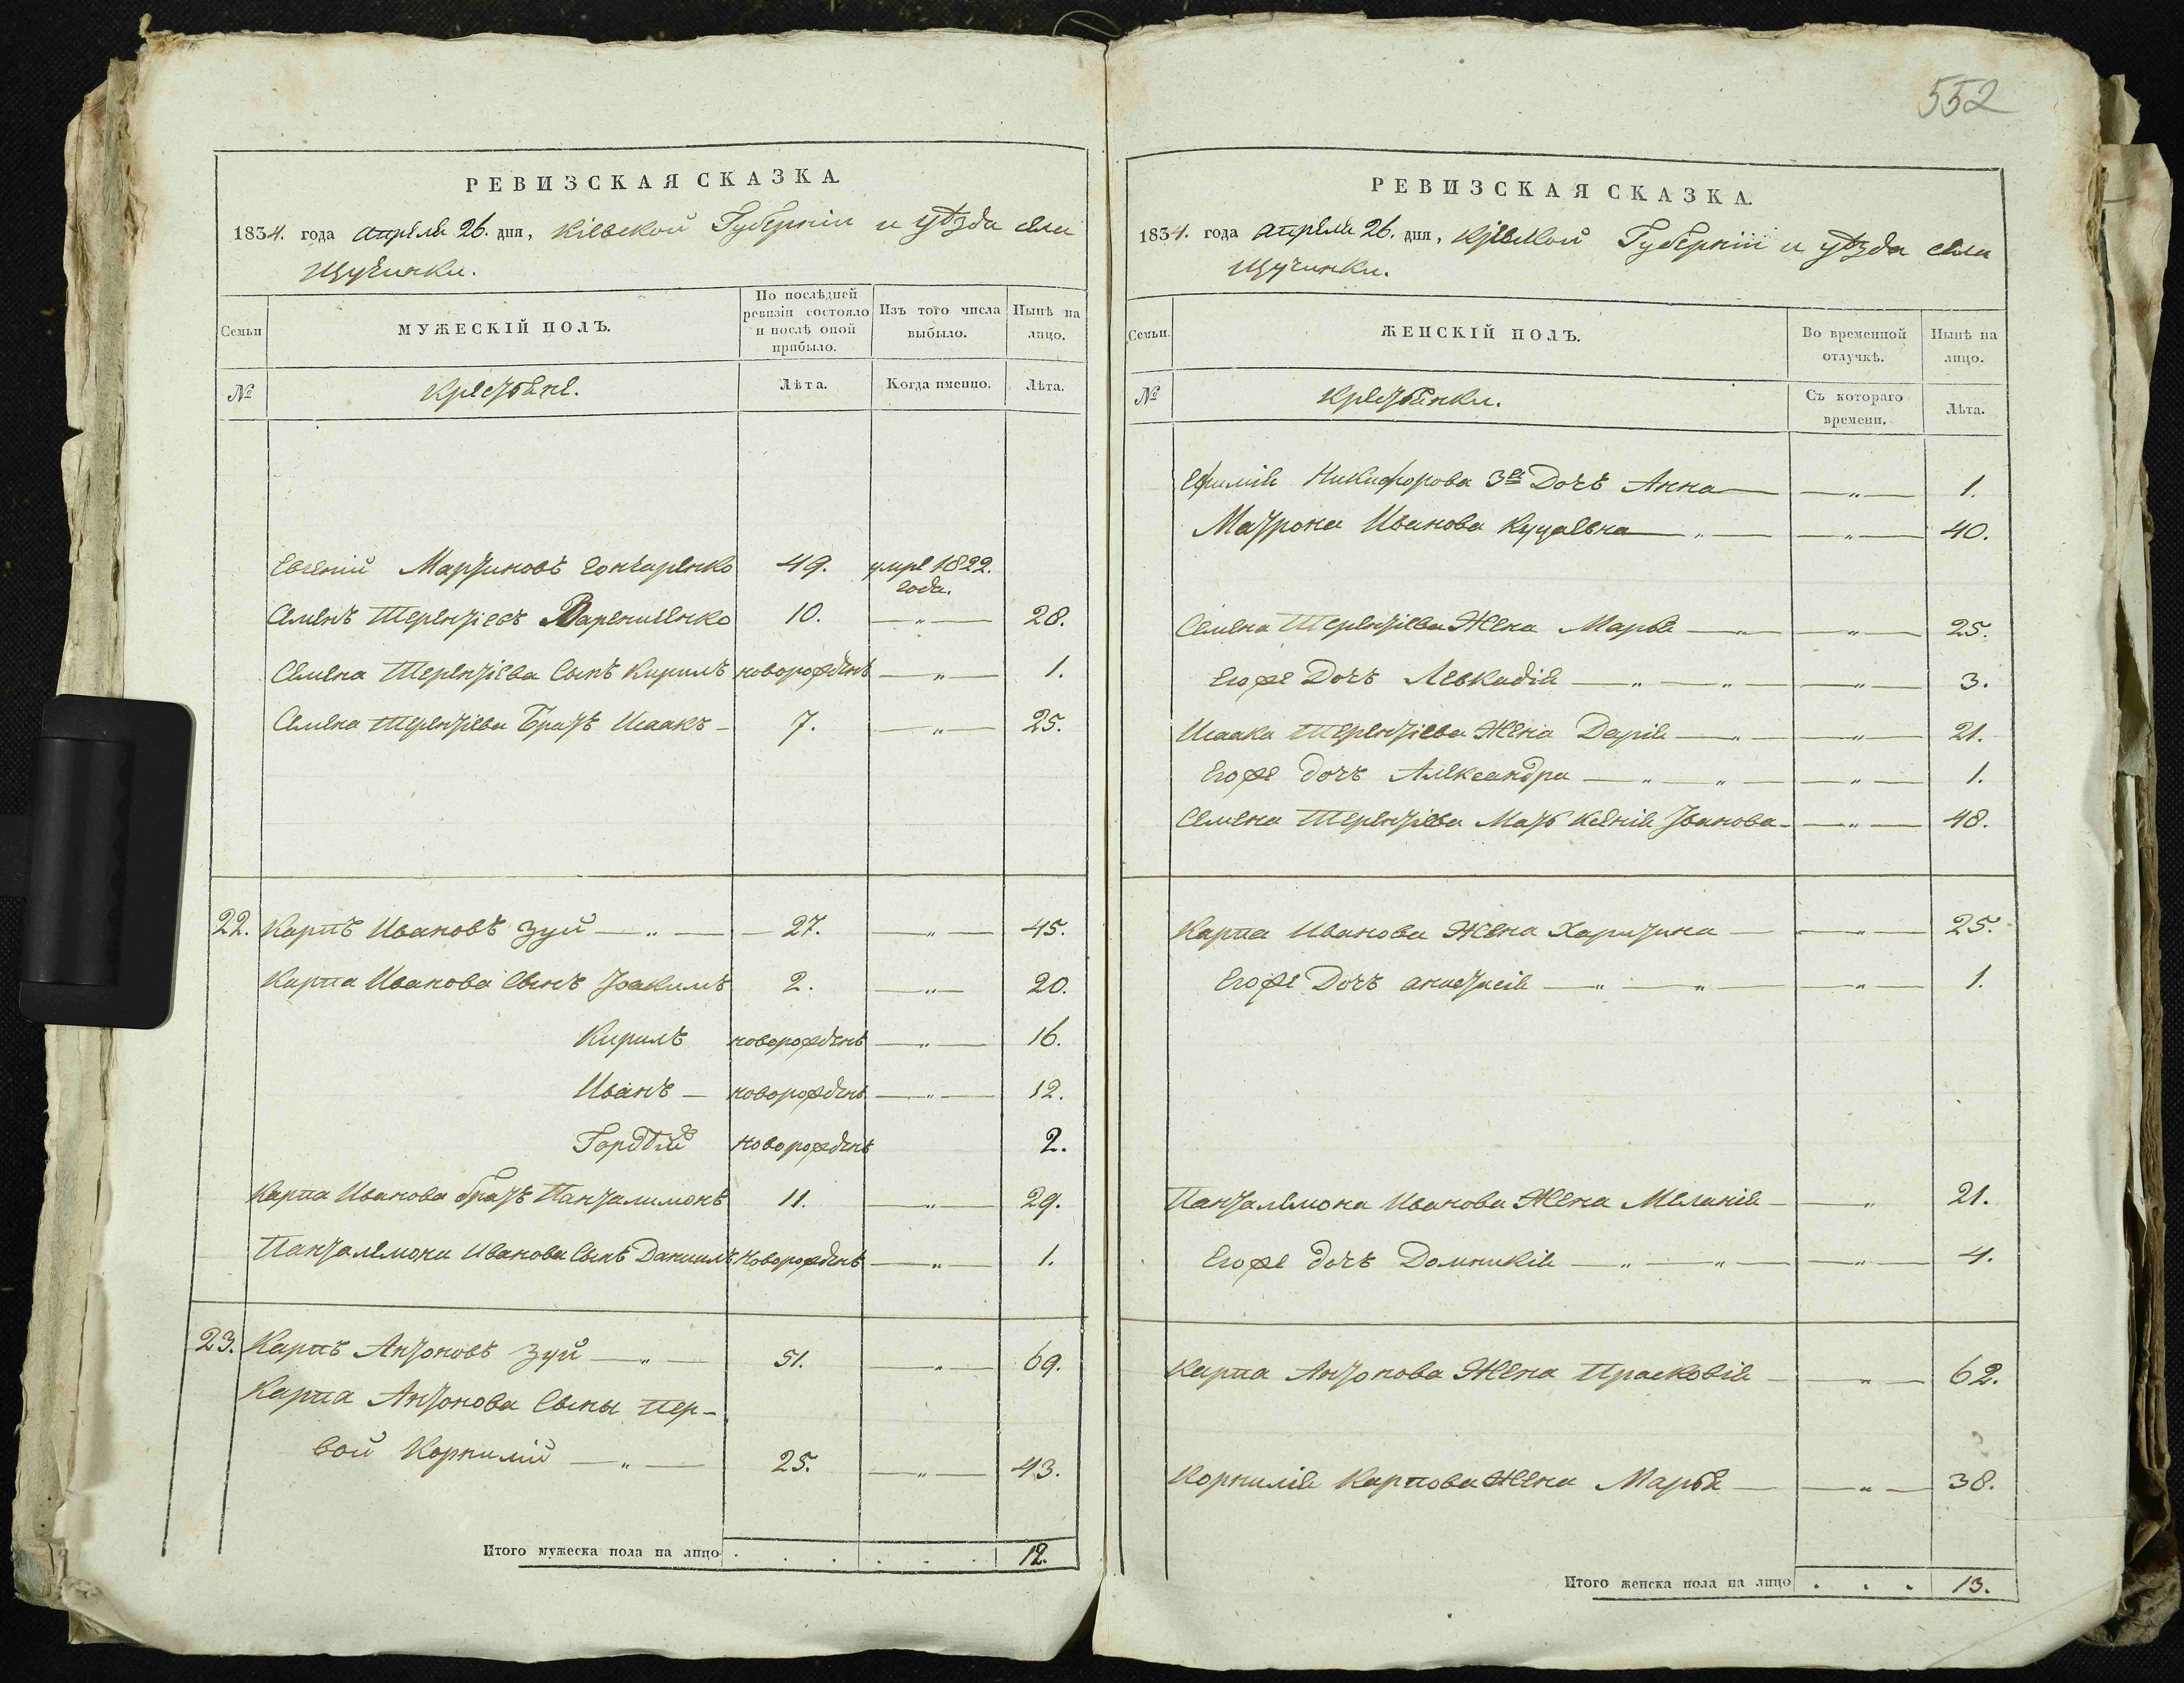 552
РЕВИЗСКАЯ СКАЗКА
1834. года апреля 26. дня, Кіевской Губерніи и уѣзда села
Щучинки.
Семьи
МУЖЕСКІЙ ПОЛЪ.
По послѣдней ревизіи состояло и послѣ оной прибыло.
Изъ того числа выбыло.
Нынѣ на лицо.
№
Крестьяне.
Лѣта.
Когда именно.
Лѣта.
Евгеній Мартиновъ Гончаренко 49. умре 1822.
года.
Семенъ Терентіевъ 10. — „ — 28.
Семена Терентіева Сынъ Кирилъ новорожденъ — „ — 1.
Семена Терентіева Братъ Исаакъ — 7. — „ — 25.
22. Карпъ Ивановъ Зуй — „ — 27. — „ — 45.
Карпа Иванова Сынъ Іоакимъ 2. — „ — 20.
Кирилъ новорожденъ — „ — 16.
Иванъ — новорожденъ — „ — 12.
Гордѣй новорожденъ 2.
Карпа Иванова братъ Панталимонъ 11. — „ — 29.
Панталемона Иванова Сынъ Даниилъ новорожденъ — „ — 1.
23. Карпъ Антоновъ Зуй — „ — 51. — „ — 69.
Карпа Антонова Сыны пер-
вой Корнилій — „ — 25. — „ — 43.
Итого мужеска пола на лицо . . . . . . 12.
РЕВИЗСКАЯ СКАЗКА.
1834. года апреля 26. дня, Кіевской Губерніи и уѣзда села
Щучинки.
Семьи.
ЖЕНСКІЙ ПОЛЪ.
Во временной отлучкѣ.
Нынѣ на лицо.
№
Крестьянки.
Съ котораго времени.
Лѣта.
Ефимія Никифорова 3я Дочь Анна — — „ — 1.
Матрона Иванова — „ — — „ — 40.
Семена Терентіева Жена Марья — „ — — „ — 25.
Егоже Дочь Левкадія — „ — „ — — „ — 3.
Исаака Терентіева Жена Дарія — „ — — „ — 21.
Егоже дочь Александра — „ — „ — — „ — 1.
Семена Терентіева Мать Ксенія Іванова — — „ — 48.
Карпа Иванова Жена Харитина — — „ — 25.
Егоже Дочь анастасія — „ — „ — — „ — 1.
Панталемона Иванова Жена Меланія — — „ 21.
Егоже дочь Домникія — „ — „ — — „ — 4.
Карпа Антонова Жена Прасковія — — „ — 62.
Корнилія Карпова Жена Марья — — „ — 38.
Итого женска пола на лицо . . . 13.